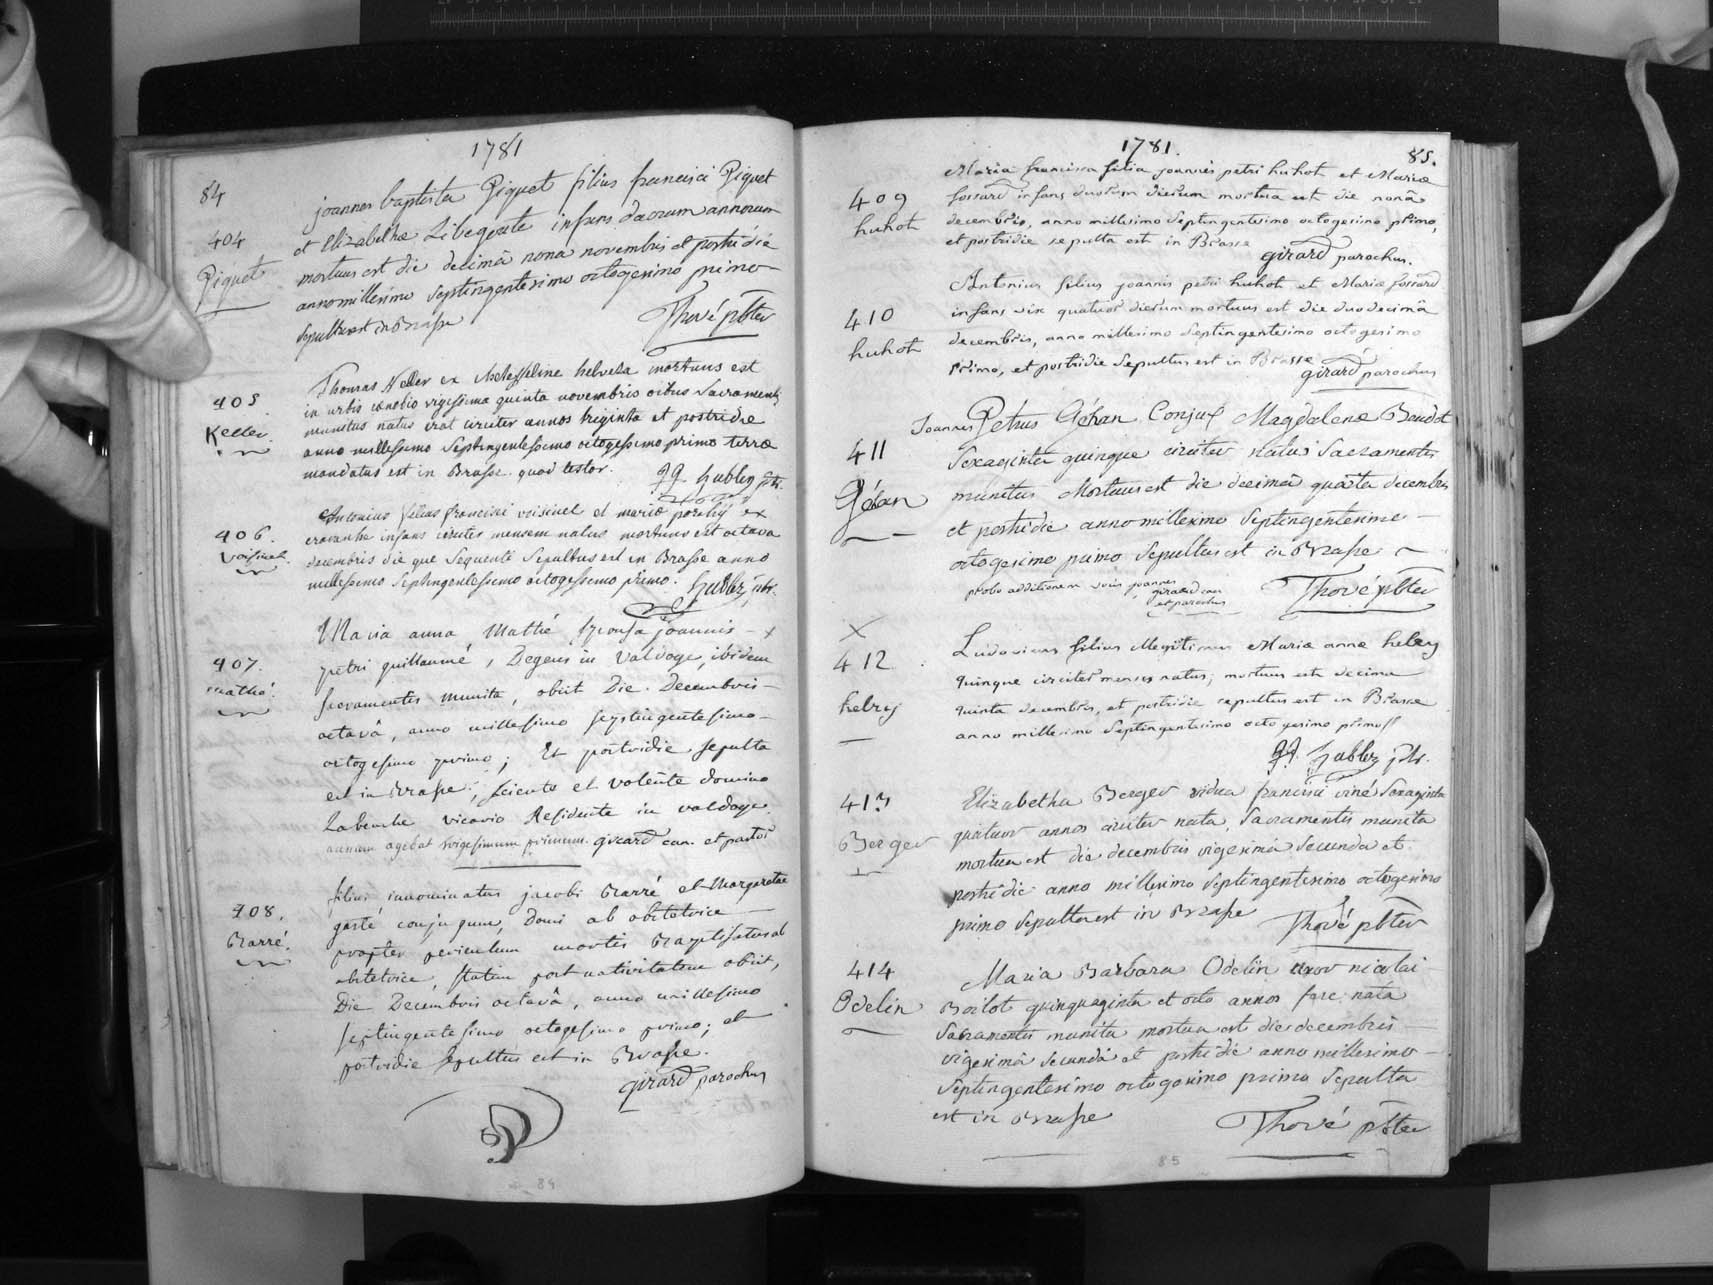 1781
84
404
Piquet
joannes baptista Piquet filius francisci Piquet
et Elizabethae Libegeute infans duorum annorum
mortuus est die decimâ nona novembris et postridie
anno millesimo septingentesimo octogesimo primo
sepultus est in Brasse
Thové pbter
405
Keller.
Thomas Keller ex helvetia mortuus est
in urbis vigessima quinta novembris oibus Sacramentis
munitus natus erat circiter annos triginta et postridie
anno millessimo Septingentessimo octogessimo primo terrae
mandatus est in Brasse. quod testor.
JJ. hublez ptr.
406.
voisinet
Antonius filius francisci voisinet et mariae ex
cravanche infans circiter mensem natus mortuus est octava
decembris die que Sequenti Sepultus est in Brasse anno
millessimo Septingentessimo octogessimo primo. hublez ptr.
407.
mathié.
Maria anna Mathié Sponsa joannis - x
petri guillaumé, Degens in valdoye, ibidem
sacramentis munita, obiit Die Decembris -
octavâ, anno millesimo septingentesimo -
octogesimo primo; Et postridie sepulta
est in Brasse; sciente et volente domino
Labouche vicario Residente in valdoye
annum agebat vigesimum primum. girard can. et pastor
408.
Barré.
filius innominatus jacobi Barré et Margaretae
gasté conjugum, Domi ab obstetrice
propter periculum mortis Baptisatus ab
obstetrice, statim post nativitatem obiit,
Die Decembris octavâ, anno millesimo
septingentesimo octogesimo primo; et
postridie sepultus est in Brasse.
girard parochus
84
1781.
85.
409
huhot
Maria francisca filia joannis petri huhot et Mariae
fossard infans duorum dierum mortua est die nonâ
decembris, anno millesimo Septingentesimo octogesimo primo,
et postridie sepulta est in Brasse
girard parochus.
410
huhot
Antonius filius joannis petri huhot et Mariae fossard
infans vix quatuor dierum mortuus est die duodecimâ
decembris, anno millesimo Septingentesimo octogesimo
primo, et postridie Sepultus est in Brasse
girard parochus
411
Géhan
Joannes Petrus Géhan Conjux Magdalenae Baudot
Sexaginta quinque circiter natus Sacramentis
munitus Mortuus est die decimâ quarta decembris
et postridie anno millesimo Septingentesimo -
octogesimo primo Sepultus est in Brasse
probo additionem vocis joannes
girard can
et parochus
Thové pbter
X
412
helry
Ludovicus filius illegitimus Mariae annae helry
quinque circiter menses natus; mortuus est decima
quinta decembris, et postridie sepultus est in Brasse
anno millesimo Septingentesimo octogesimo primo //
JJ. hublez ptr.
413
Berger
Elizabetha Berger vidua francisci viné Sexaginta
quatuor annos circiter nata, Sacramentis munita
mortua est die decembris vigesimâ Secunda et
postridie anno millesimo Septingentesimo octogesimo
primo Sepulta est in Brasse
Thové pbter
414
Odelin
Maria Barbara Odelin uxor nicolai
Boilot quinquaginta et octo annos fere nata
Sacramentis munita mortua est die decembris
vigesimâ Secundâ et postridie anno millesimo -
Septingentesimo octogesimo primo Sepulta
est in Brasse
Thové pbter
85